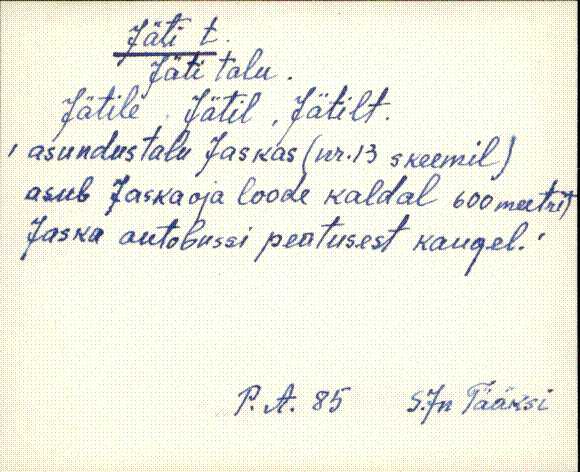 Jäti t.
Jäti talu.
Jätile, Jätil, Jätilt.
, asundustalu Jaskas (nr. 13 skeemil)
asub Jaska oja loode kaldal 600 meetrit
Jaska autobussi peatusest kaugel.'
P. A. 85 S.Jn Tääksi